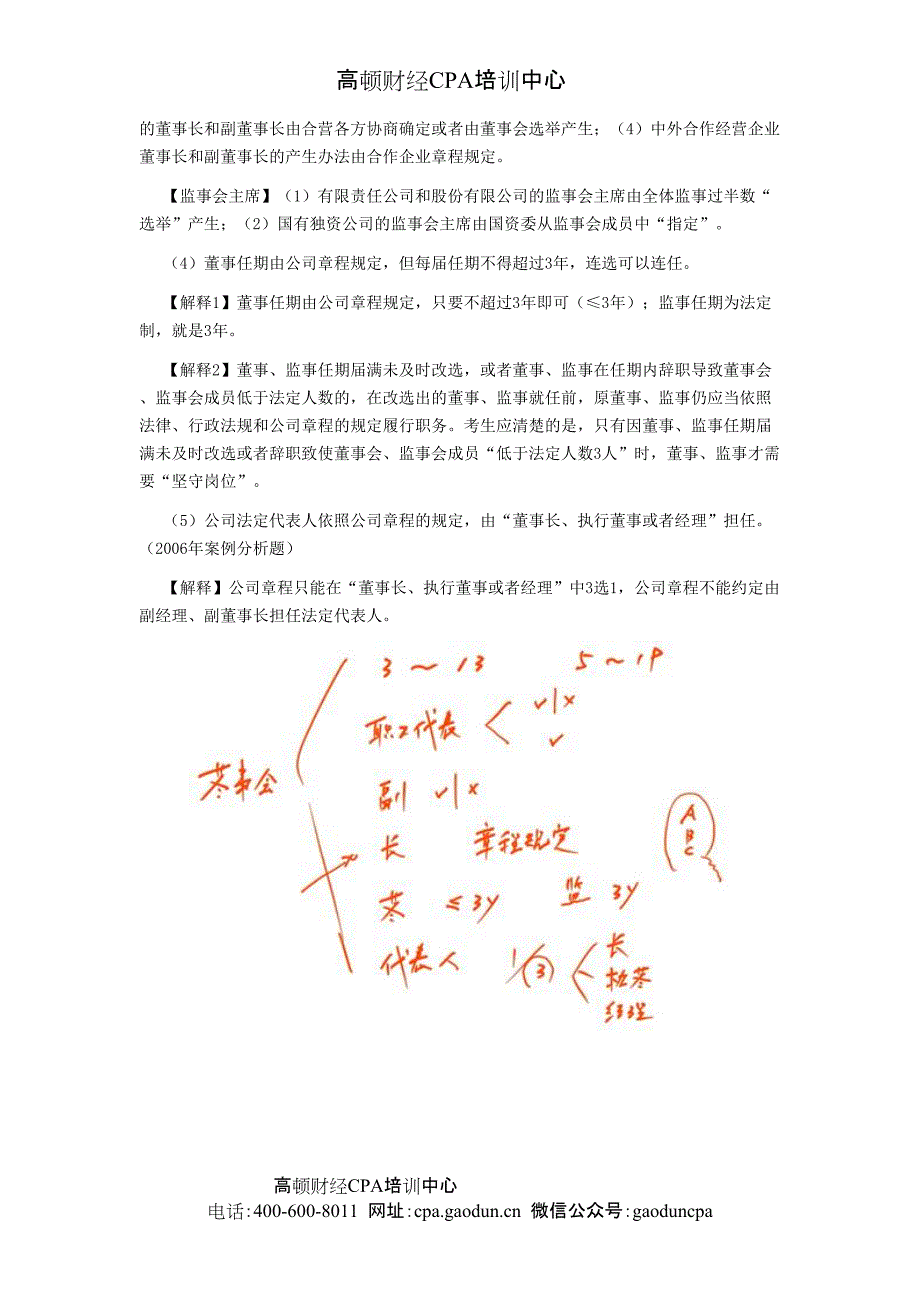 高顿财经CPA培训中心
的董事长和副董事长由合营各方协商确定或者由董事会选举产生；（4）中外合作经营企业
董事长和副董事长的产生办法由合作企业章程规定。
【监事会主席】（1）有限责任公司和股份有限公司的监事会主席由全体监事过半数“
选举”产生；（2）国有独资公司的监事会主席由国资委从监事会成员中“指定”。
（4）董事任期由公司章程规定，但每届任期不得超过3年，连选可以连任。
【解释1】董事任期由公司章程规定，只要不超过3年即可（≤3年）；监事任期为法定
制，就是3年。
【解释2】董事、监事任期届满未及时改选，或者董事、监事在任期内辞职导致董事会
、监事会成员低于法定人数的，在改选出的董事、监事就任前，原董事、监事仍应当依照
法律、行政法规和公司章程的规定履行职务。考生应清楚的是，只有因董事、监事任期届
满未及时改选或者辞职致使董事会、监事会成员“低于法定人数3人”时，董事、监事才需
要“坚守岗位”。
（5）公司法定代表人依照公司章程的规定，由“董事长、执行董事或者经理”担任。
（2006年案例分析题）
【解释】公司章程只能在“董事长、执行董事或者经理”中3选1，公司章程不能约定由
副经理、副董事长担任法定代表人。
3～13 5～19
职工代表 √|×
√
董事会
副 √|×
长 章程规定
A
B
C
董 ≤3y 监 3y
代表人 1/3 长
执董
经理
高顿财经CPA培训中心
电话:400-600-8011 网址:cpa.gaodun.cn 微信公众号:gaoduncpa